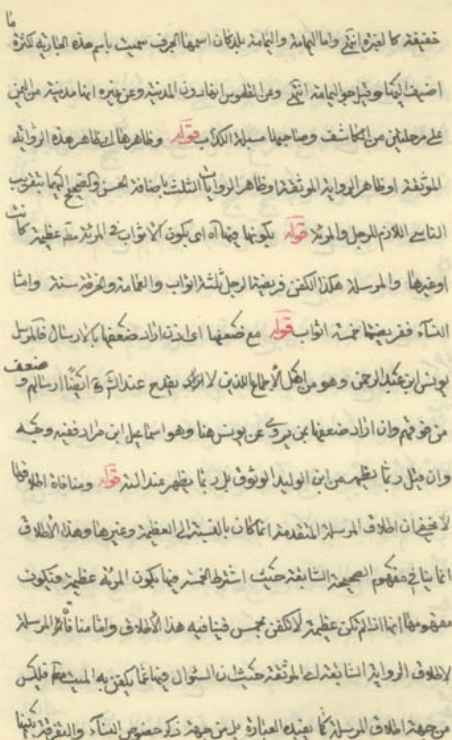 خفيفة كما لغيره انتهى واما اليمامة واليمامة بلد كان اسمها الجو فسميت باسم هذه الجارية لكثرة ما
اضيف اليها وقيل جو اليمامة انتهى وعن القاموس انها دون المدينة وعن غيره انها مدينة من اليمن
على مرحلتين من الطائف وصاحبها مسيلمة الكذاب قوله وظاهرها اى ظاهر هذه الرواية
الموثقة او ظاهر الرواية الموثقة وظاهر الروايات الثلث باضافة الحسن والصحيح اليها بتقريب
التاسى اللازم للرجل والمرئة قوله بكونها فيها اه اى بكون الاثواب فى المرئة عظيمة كانت
او غيرها والمرسلة هكذا الكفن فريضة للرجل ثلثة اثواب والعمامة والخرقة سنة واما
النساء ففريضتها خمسة اثواب قوله مع ضعفها اى اذن اراد ضعفها بالارسال فالمرسل
يونس ابن عبد الرحمن وهو من اهل الاجماع الذين لا يقدح عند الشرح ايضا ارسالهم و ضعف
من فوقهم وان اراد ضعفها بمن يروى عن يونس هنا وهو اسماعيل ابن مرار ففيه وجه
وان قيل ربما يظهر من ابن الوليد الوثوق بل ربما يظهر عند البته قوله ومنافاة اطلاقها
لا يخفى ان اطلاق المرسلة المتقدمة انما كان بالنسبة الى العظيمة وغيرها وهذا الاطلاق
انما ينافى مفهوم الصحيحة السابقة حيث اشترط الخمسة فيها بكون المرئة عظيمة فيكون
مفهومها انها اذا لم تكن عظيمة لا تكفن بخمس فينافيه هذا الاطلاق واما منافاة المرسلة
لاطلاق الرواية السابقة اى الموثقة حيث ان السؤال فيها عما يكفن به الميت فليس
من جهة اطلاق المرسلة كما يفيده العبارة بل من جهة ذكر خصوص النساء والتفرقة بينها